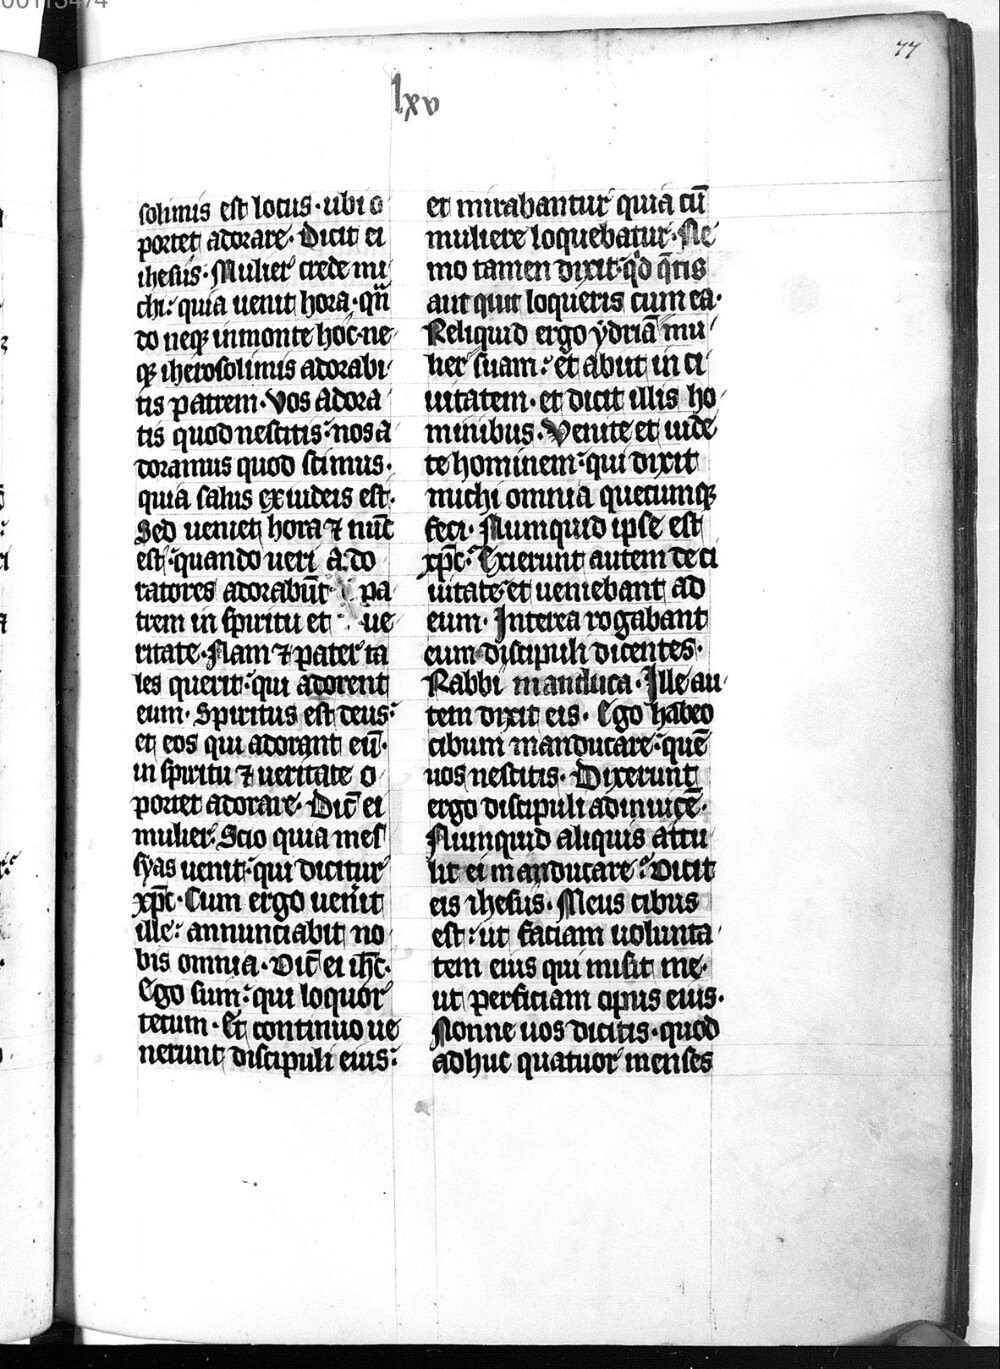 77
lxv
solimis est locus · ubi o
portet adorare · Dicit ei
ihesus · Mulier crede mi
chi : quia uenit hora · qn̄
do neqꝫ in monte hoc · ne
qꝫ iherosolimis adorabi
tis patrem · Vos adora
tis quod nescitis : nos a
doramus quod scimus ·
quia salus ex iudeis est ·
Sed ueniet hora ⁊ nūc
est · quando ueri ado
ratores adorabūt pa
trem in spiritu et ue
ritate · Nam ⁊ pater ta
les querit : qui adorent
eum · Spiritus est deus :
et eos qui adorant eū ·
in spiritu ⁊ ueritate o
portet adorare · Dic̄ ei
mulier · Scio quia mes
syas uenit : qui dicitur
xp̄c · Cum ergo uenit
ille : annunciabit no
bis omnia · Dic̄ ei ih̄c ·
Ego sum : qui loquor
tecum · Et continuo ue
nerunt discipuli eius :
et mirabantur quia cū
muliere loquebatur · Ne
mo tamen dixit · qd̄ q̄ris
aut quit loqueris cum ea ·
Reliquid ergo ydriā mu
lier suam : et abiit in ci
uitatem · et dicit illis ho
minibus · Venite et uide
te hominem : qui dixit
michi omnia quecumqꝫ
feci · Numquid ipse est
xp̄c · Exierunt autem de ci
uitate et ueniebant ad
eum · Interea rogabant
eum discipuli dicentes ·
Rabbi manduca · Ille au
tem dixit eis · Ego habeo
cibum manducare : quē
uos nescitis · Dixerunt
ergo discipuli adinuicē ·
Numquid aliquis attu
lit ei manducare : Dicit
eis ihesus · Meus cibus
est : ut faciam uolunta
tem eius qui misit me ·
ut perficiam opus eius ·
Nonne uos dicitis · quod
adhuc quatuor menses